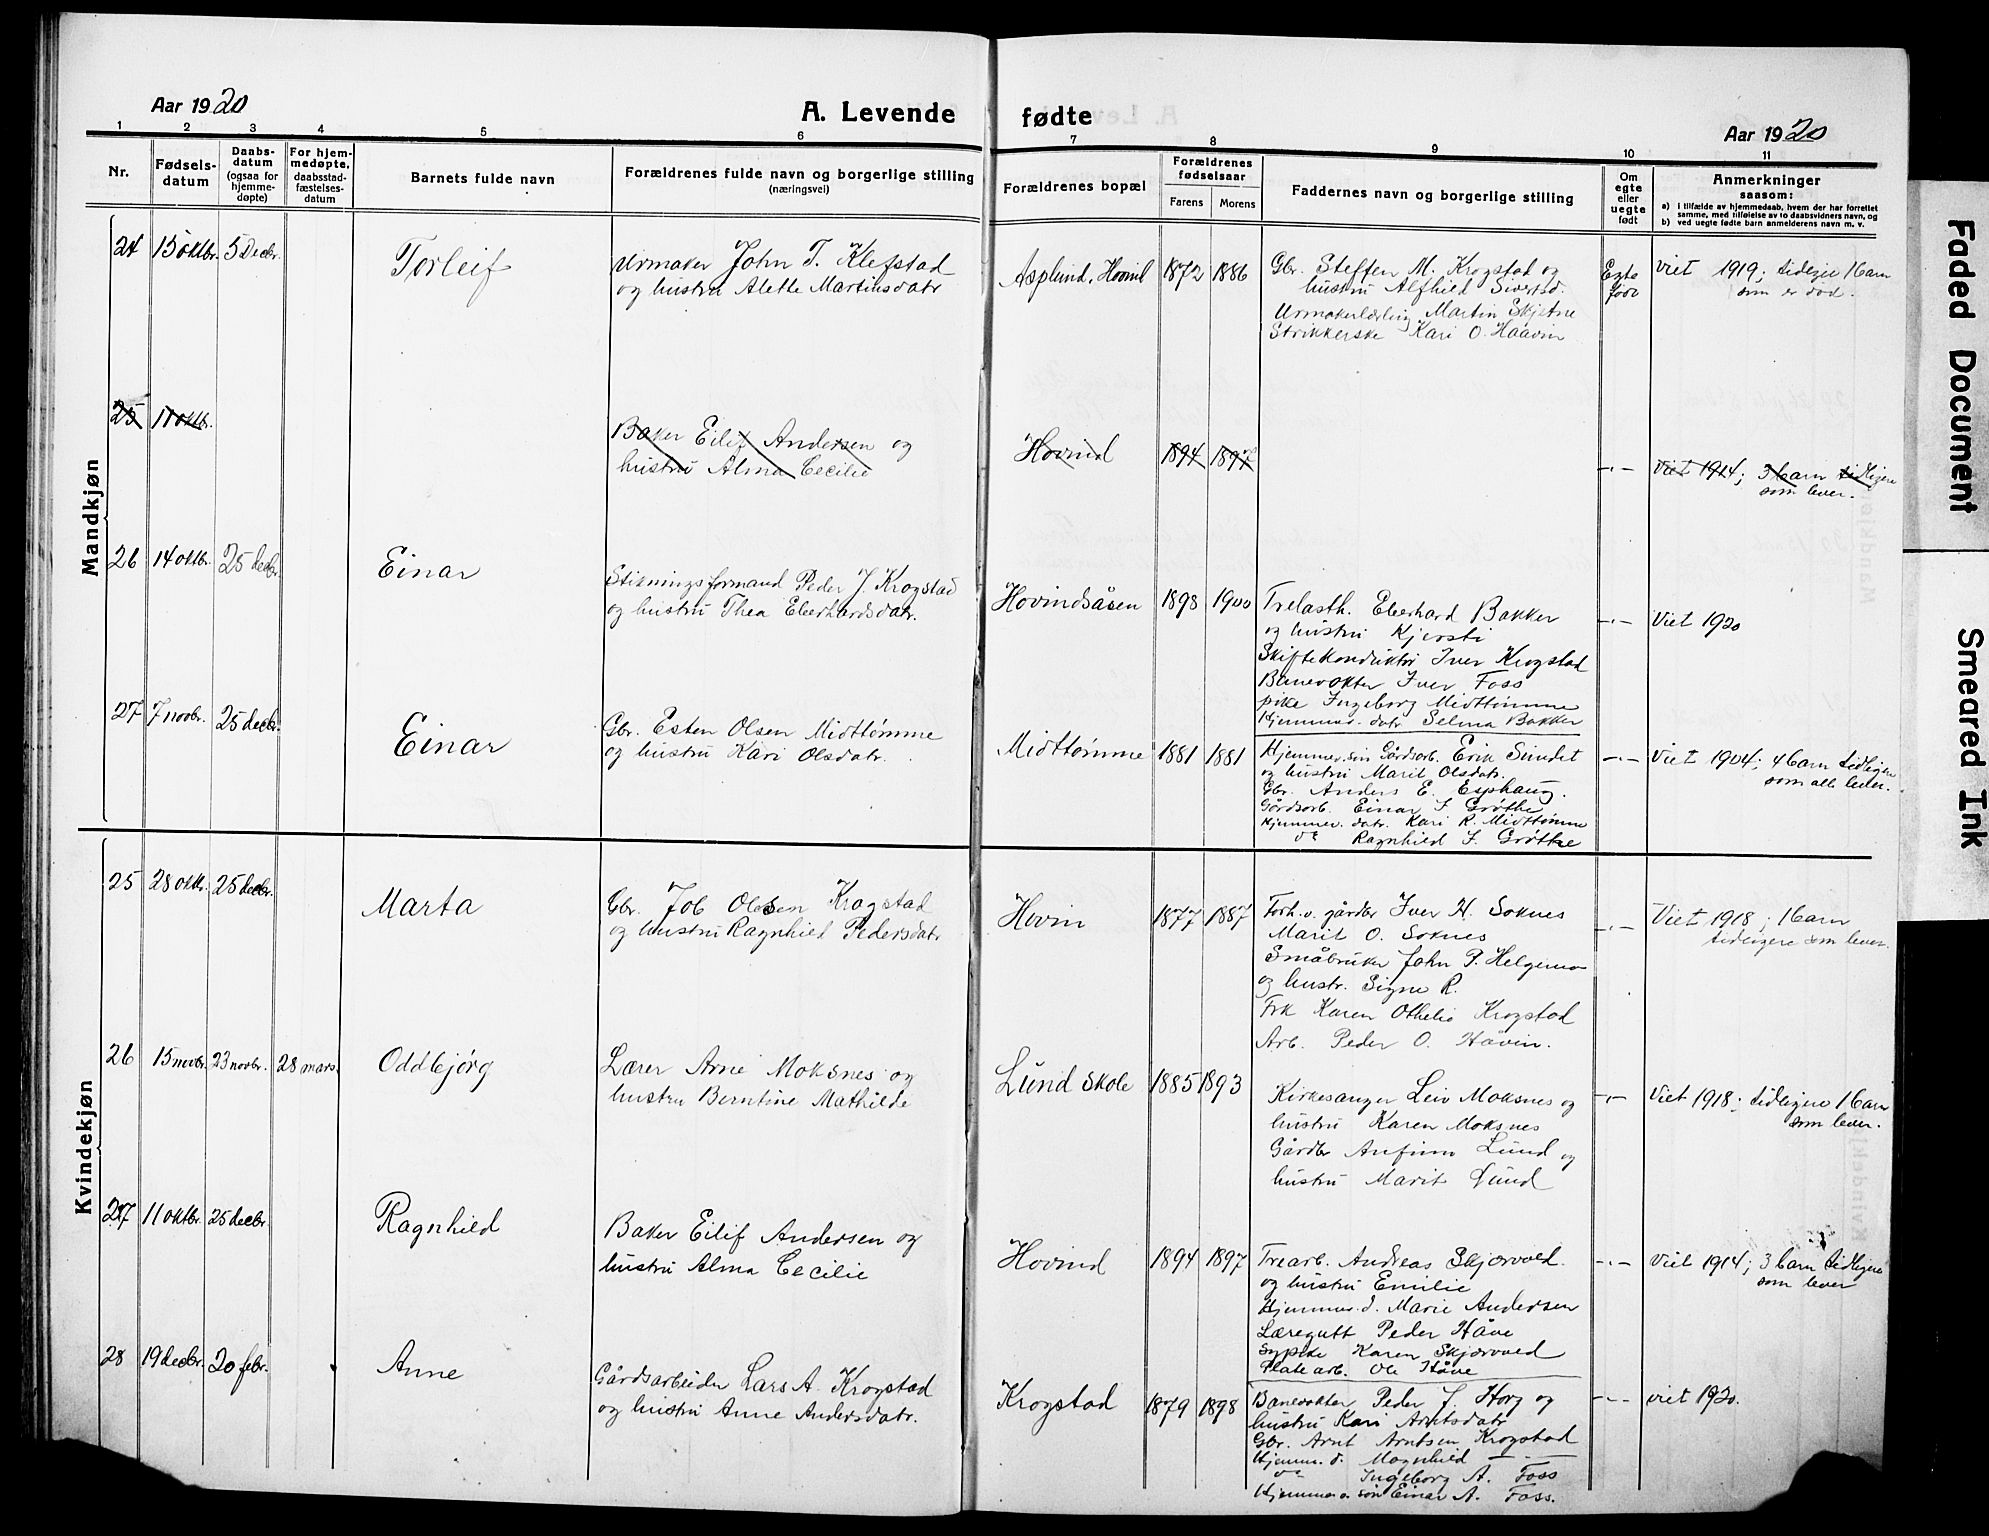 Aar 1920
A. Levende
fødte
Aar 1920
1 2 3 4 5 6 7 8 9 10 11
Nr.
Fødsels-
datum
Daabs-
datum
(ogsaa for
hjemme-
døpte)
For hjem-
medøpte,
daabsstad-
fæstelses-
datum
Barnets fulde navn
Forældrenes fulde navn og borgerlige stilling
(næringsvei)
Forældrenes bopæl
Forældrenes
fødselsaar
Farens Morens
Faddernes navn og borgerlige stilling
Om
egte
eller
uegte
født
Anmerkninger
saasom:
a) i tilfælde av hjemmedaab, hvem der har forrettet
samme, med tilføielse av to daabsvidners navn, og
b) ved uegte fødte barn anmelderens navn m. v.
Mandkjøn
24 15 oktbr. 5 Decbr. Torleif
Urmaker John T. Klefstad
og hustru Alette Martinsdatr
Asplund, Hovind 1872 1886
Gbr. Steffen M. Krogstad og
hustru Alfhild Sivertsd.
Urmakerlærling Martin Skjetne
Strikkerske Kari O. Håavin
Egte
født
Viet 1919; tidligere 1 barn
som er død.
25 11 oktbr.
Baker Eilif Andersen og
hustru Alma Cecilie
Hovind 1894 1897
-"-
Viet 1914; 3 barn tidligere
som lever.
26 14 oktbr. 25 decbr. Einar
Stikningsformand Peder J. Krogstad
og hustru Thea Eberhardsdatr.
Hovindsåsen 1898 1900
Trelasth. Eberhard Bakker
og hustru Kjersti
Skiftekonduktør Iver Krogstad
Banevokter Iver Foss
pike Ingeborg Midttømme
Hjemmev. datr. Selma Bakker
-"-
Viet 1920
27 7 novbr. 25 decbr. Einar
Gbr. Esten Olsen Midttømme
og hustru Kari Olsdatr.
Midttømme 1881 1881
Hjemmev. søn Gårdsarb. Erik Sundet
og hustru Marit Olsdatr.
Gbr. Anders E. Esphaug.
Gårdsarb. Einar I. Grøthe
Hjemmev. datr. Kari R. Midttømme
do Ragnhild I. Grøthe
-"-
Viet 1904; 4 barn tidligere
som alle lever.
Kvindekjøn
25 28 oktbr. 25 decbr. Marta
Gbr. Job Olsen Krogstad
og hustru Ragnhild Pedersdatr
Hovin 1877 1887
Forh.v. gårdbr Iver H. Soknes
Marit O. Soknes
Småbruker John P. Helgemo
og hustr. Signe R.
Frk Karen Othelie Krogstad
Arb. Peder O. Håvin.
-"-
Viet 1918; 1 barn
tidligere som lever.
26 15 novbr. 23 novbr. 28 mars. Oddbjørg
Lærer Arne Moksnes og
hustru Berntine Mathilde
Lund skole 1885 1893
Kirkesanger Leiv Moksnes og
hustru Karen Moksnes
Gårdbr Anfinn Lund og
hustru Marit Lund
-"-
Viet 1918; tidligere 1 barn
som lever.
27 11 oktbr. 25 decbr. Ragnhild
Baker Eilif Andersen og
hustru Alma Cecilie
Hovind 1894 1897
Trearb. Andreas Skjærvold.
og hustru Emilie
Hjemmev. d. Marie Andersen
Læregutt Peder Håve
Sypike Karen Skjærvold
Platearb. Ole Håve
-"-
Viet 1914; 3 barn tidligere
som lever
28 19 decbr. 20 febr. Anne
Gårdsarbeider Lars A. Krogstad
og hustru Anne Andersdatr.
Krogstad 1879 1898
Banevokter Peder J. Horg og
hustru Kari Arntsdatr
Gbr. Arnt Arntsen Krogstad
Hjemmev. d. Magnhild -"-
do Ingeborg A. Foss
Hjemmev. søn Einar A. Foss.
-"-
Viet 1920.
Faded Document
Smeared Ink